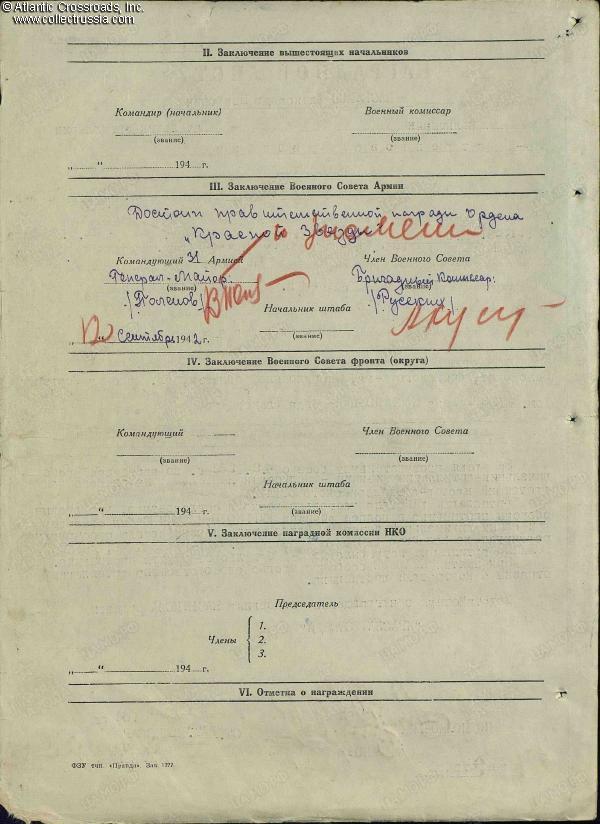 © Atlantic Crossroads, Inc.
www.collectrussia.com
II. Заключение вышестоящих начальников
Командир (начальник) Военный комиссар
(звание) (звание)
„ “ 194 г.
III. Заключение Военного Совета Армии
Достоин правительственной награды Ордена
„Красной Звезды
Командующий 31 Армией Член Военного Совета
Генерал-Майор Бригадный Комиссар
(звание) (звание)
/Поленов/ /Русских/
Начальник штаба
(звание)
Сентября 1942 г.
IV. Заключение Военного Совета фронта (округа)
Командующий Член Военного Совета
(звание) (звание)
Начальник штаба
(звание)
„ “ 194 г.
V. Заключение наградной комиссии НКО
Председатель
Члены { 1.
2.
3.
„ “ 194 г.
VI. Отметка о награждении
ФЗУ тип. «Правда». Зак. 1277.